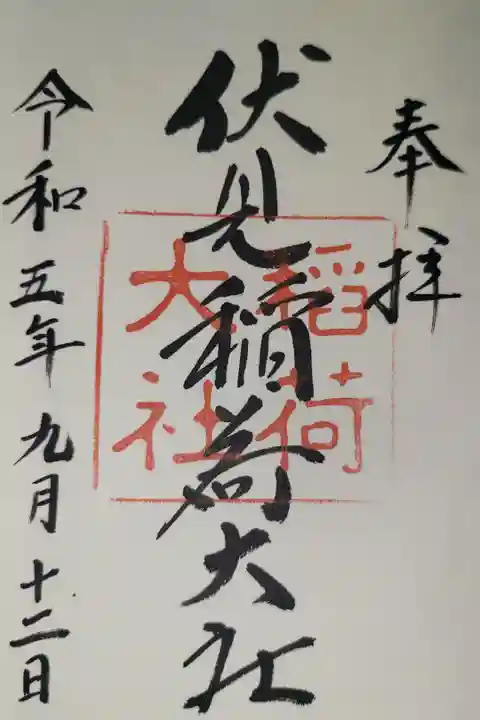 奉拝
伏見稲荷大社
稲荷
大社
令和五年九月十二日